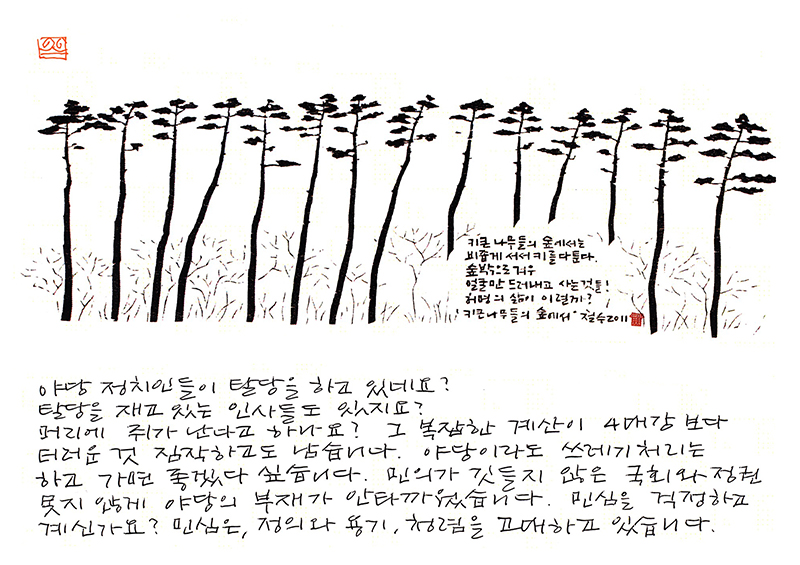 키큰 나무들의 숲에서는
비좁게 서서 키를 다툰다.
숲 밖으로 겨우
얼굴만 드러내고 사는 것들!
허명의 삶이 이럴까?
'키큰나무들의 숲에서' 철수 2011
야당 정치인들이 탈당을 하고 있네요?
탈당을 재고 있는 인사들도 있지요?
머리에 쥐가 난다고 하나요? 그 복잡한 계산이 4대강 보다
더러운 것 짐작하고도 남습니다. 야당이라도 쓰레기처리는
하고 가면 좋겠다 싶습니다. 민의가 깃들지 않은 국회와 정권
못지 않게 야당의 부재가 안타까웠습니다. 민심을 걱정하고
계신가요? 민심은, 정의와 용기, 청렴을 고대하고 있습니다.